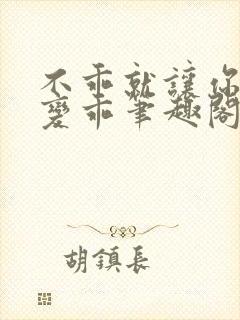 不乖就讓你
變乖筆趣閣
胡鎮長